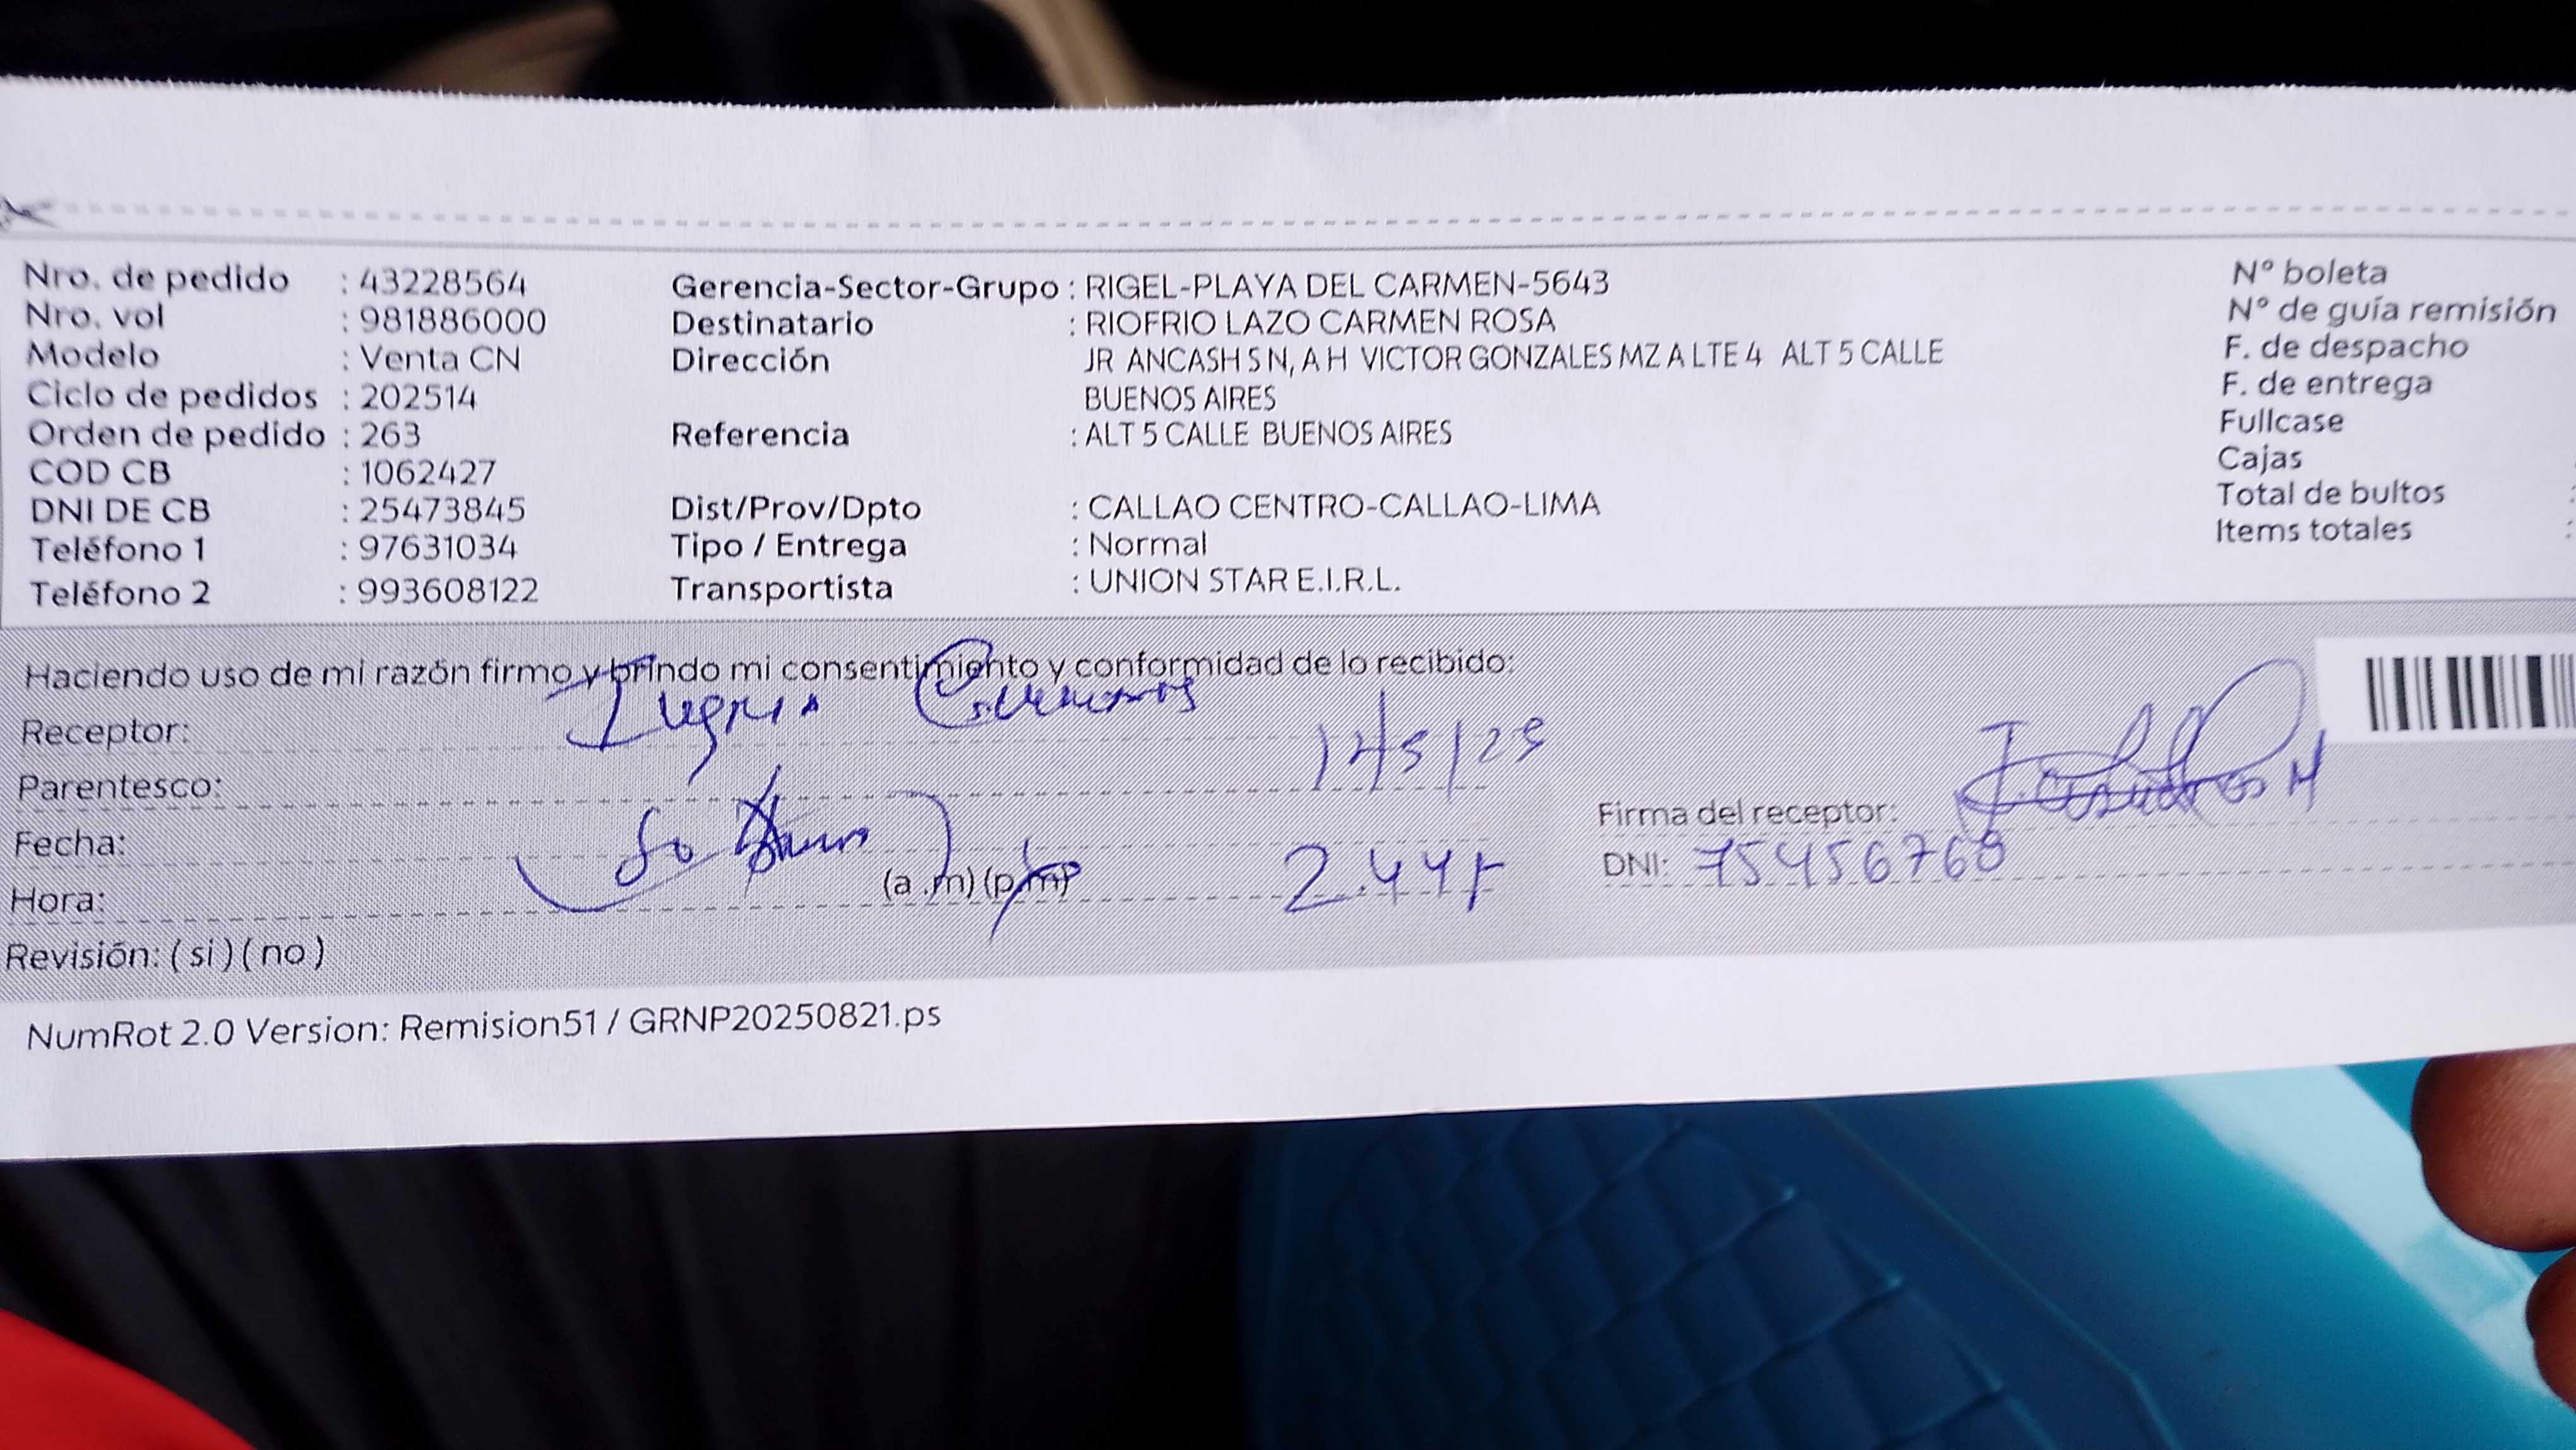 Nro. de pedido : 43228564 Gerencia-Sector-Grupo : RIGEL-PLAYA DEL CARMEN-5643 N° boleta
Nro. vol : 981886000 Destinatario : RIOFRIO LAZO CARMEN ROSA N° de guía remisión
Modelo : Venta CN Dirección JR ANCASH S N, A H VICTOR GONZALES MZ A LTE 4 ALT 5 CALLE F. de despacho
Ciclo de pedidos : 202514 BUENOS AIRES F. de entrega
Orden de pedido : 263 Referencia : ALT 5 CALLE BUENOS AIRES Fullcase
COD CB : 1062427 Cajas
DNI DE CB : 25473845 Dist/Prov/Dpto : CALLAO CENTRO-CALLAO-LIMA Total de bultos
Teléfono 1 : 97631034 Tipo / Entrega : Normal Items totales :
Teléfono 2 : 993608122 Transportista : UNION STAR E.I.R.L.
Haciendo uso de mi razón firmo y brindo mi consentimiento y conformidad de lo recibido:
Receptor:
Parentesco:
Fecha: Firma del receptor:
Hora: (a .m) (p.m) 2.44 DNI: 75456768
Revisión: ( si ) ( no )
NumRot 2.0 Version: Remision51 / GRNP20250821.ps